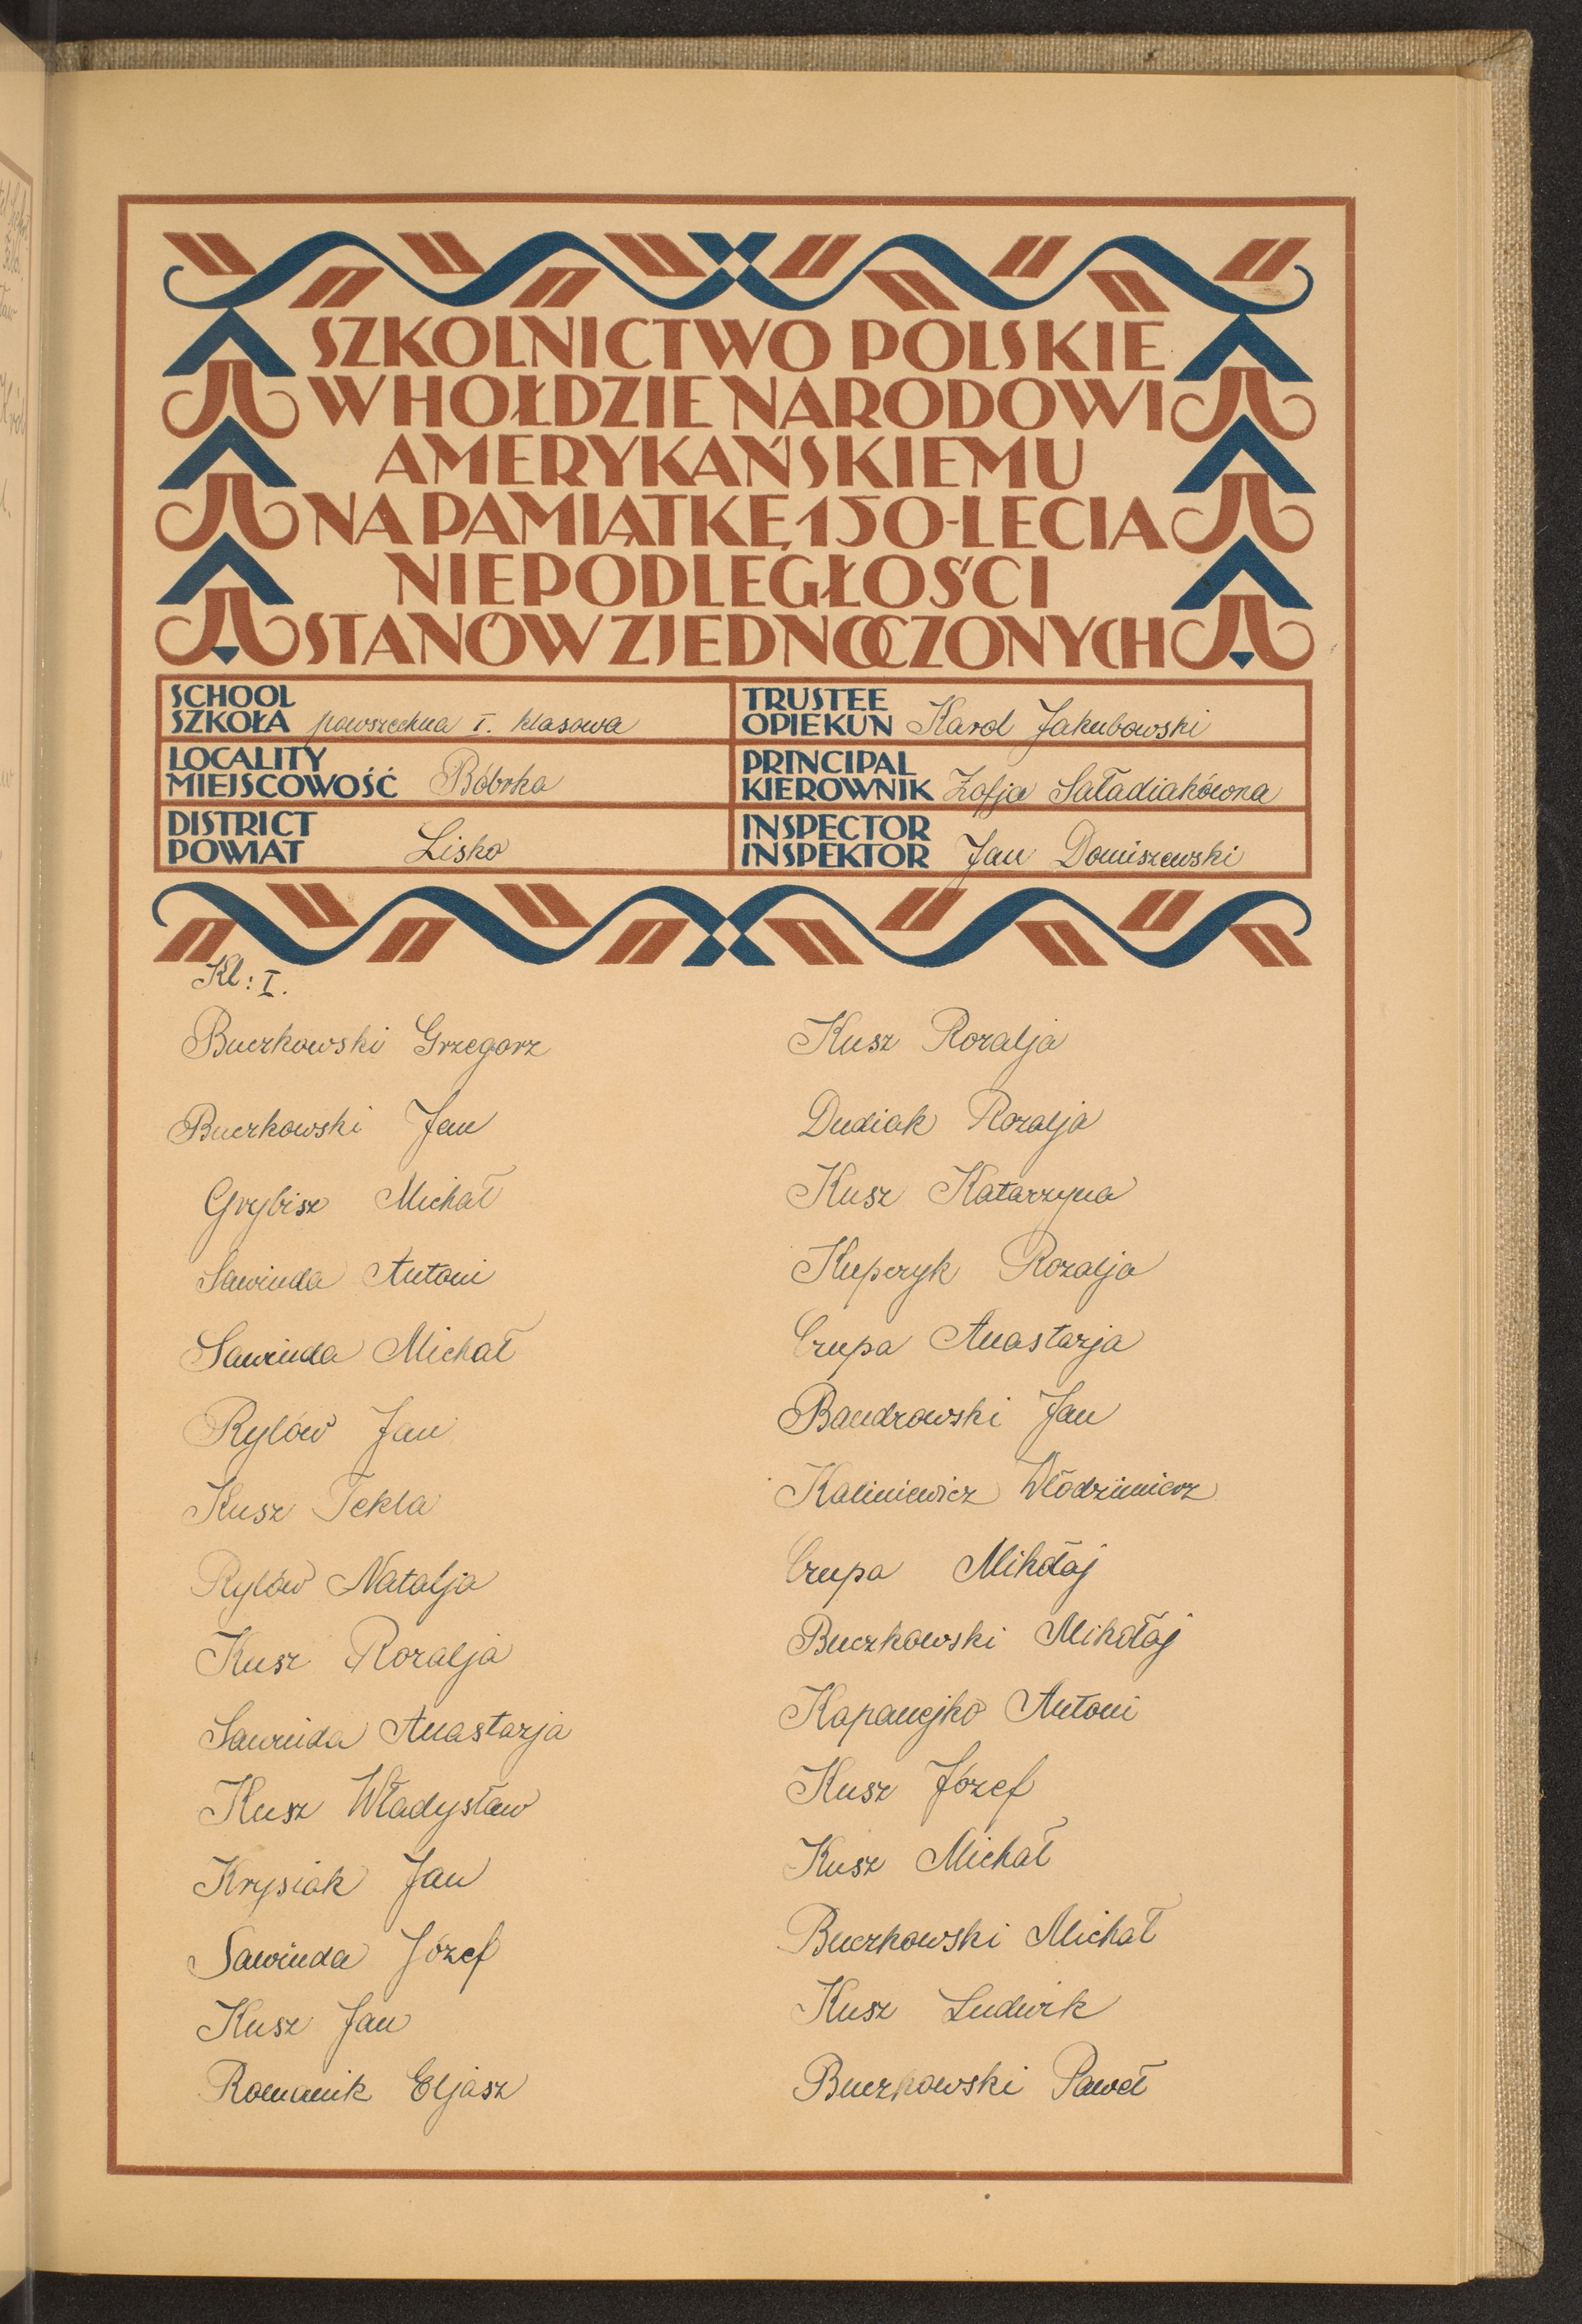 SZKOLNICTWO POLSKIE
W HOŁDZIE NARODOWI
AMERYKAŃSKIEMU
NA PAMIĄTKĘ 150-LECIA
NIEPODLEGŁOŚCI
STANÓW ZJEDNOCZONYCH
SCHOOL
SZKOŁA powszechna I. klasowa
TRUSTEE
OPIEKUN Karol Jakubowski
LOCALITY
MIEJSCOWOŚĆ Bóbrka
PRINCIPAL
KIEROWNIK Zofja Saładiakówna
DISTRICT
POWIAT Lisko
INSPECTOR
INSPEKTOR Jan Domiszewski
Kl: I.
Buczkowski Grzegorz
Buczkowski Jan
Grybisz Michał
Sawinda Antoni
Sawinda Michał
Rylów Jan
Kusz Tekla
Rylów Natalja
Kusz Rozalja
Sawinda Anastazja
Kusz Władysław
Krysiak Jan
Sawinda Józef
Kusz Jan
Romanik Eljasz
Kusz Rozalja
Dudiak Rozalja
Kusz Katarzyna
Kupczyk Rozalja
Czupa Anastazja
Bandrowski Jan
Kaliniewicz Włodzimierz
Czupa Mikołaj
Buczkowski Mikołaj
Kapanejko Antoni
Kusz Józef
Kusz Michał
Buczkowski Michał
Kusz Ludwik
Buczkowski Paweł